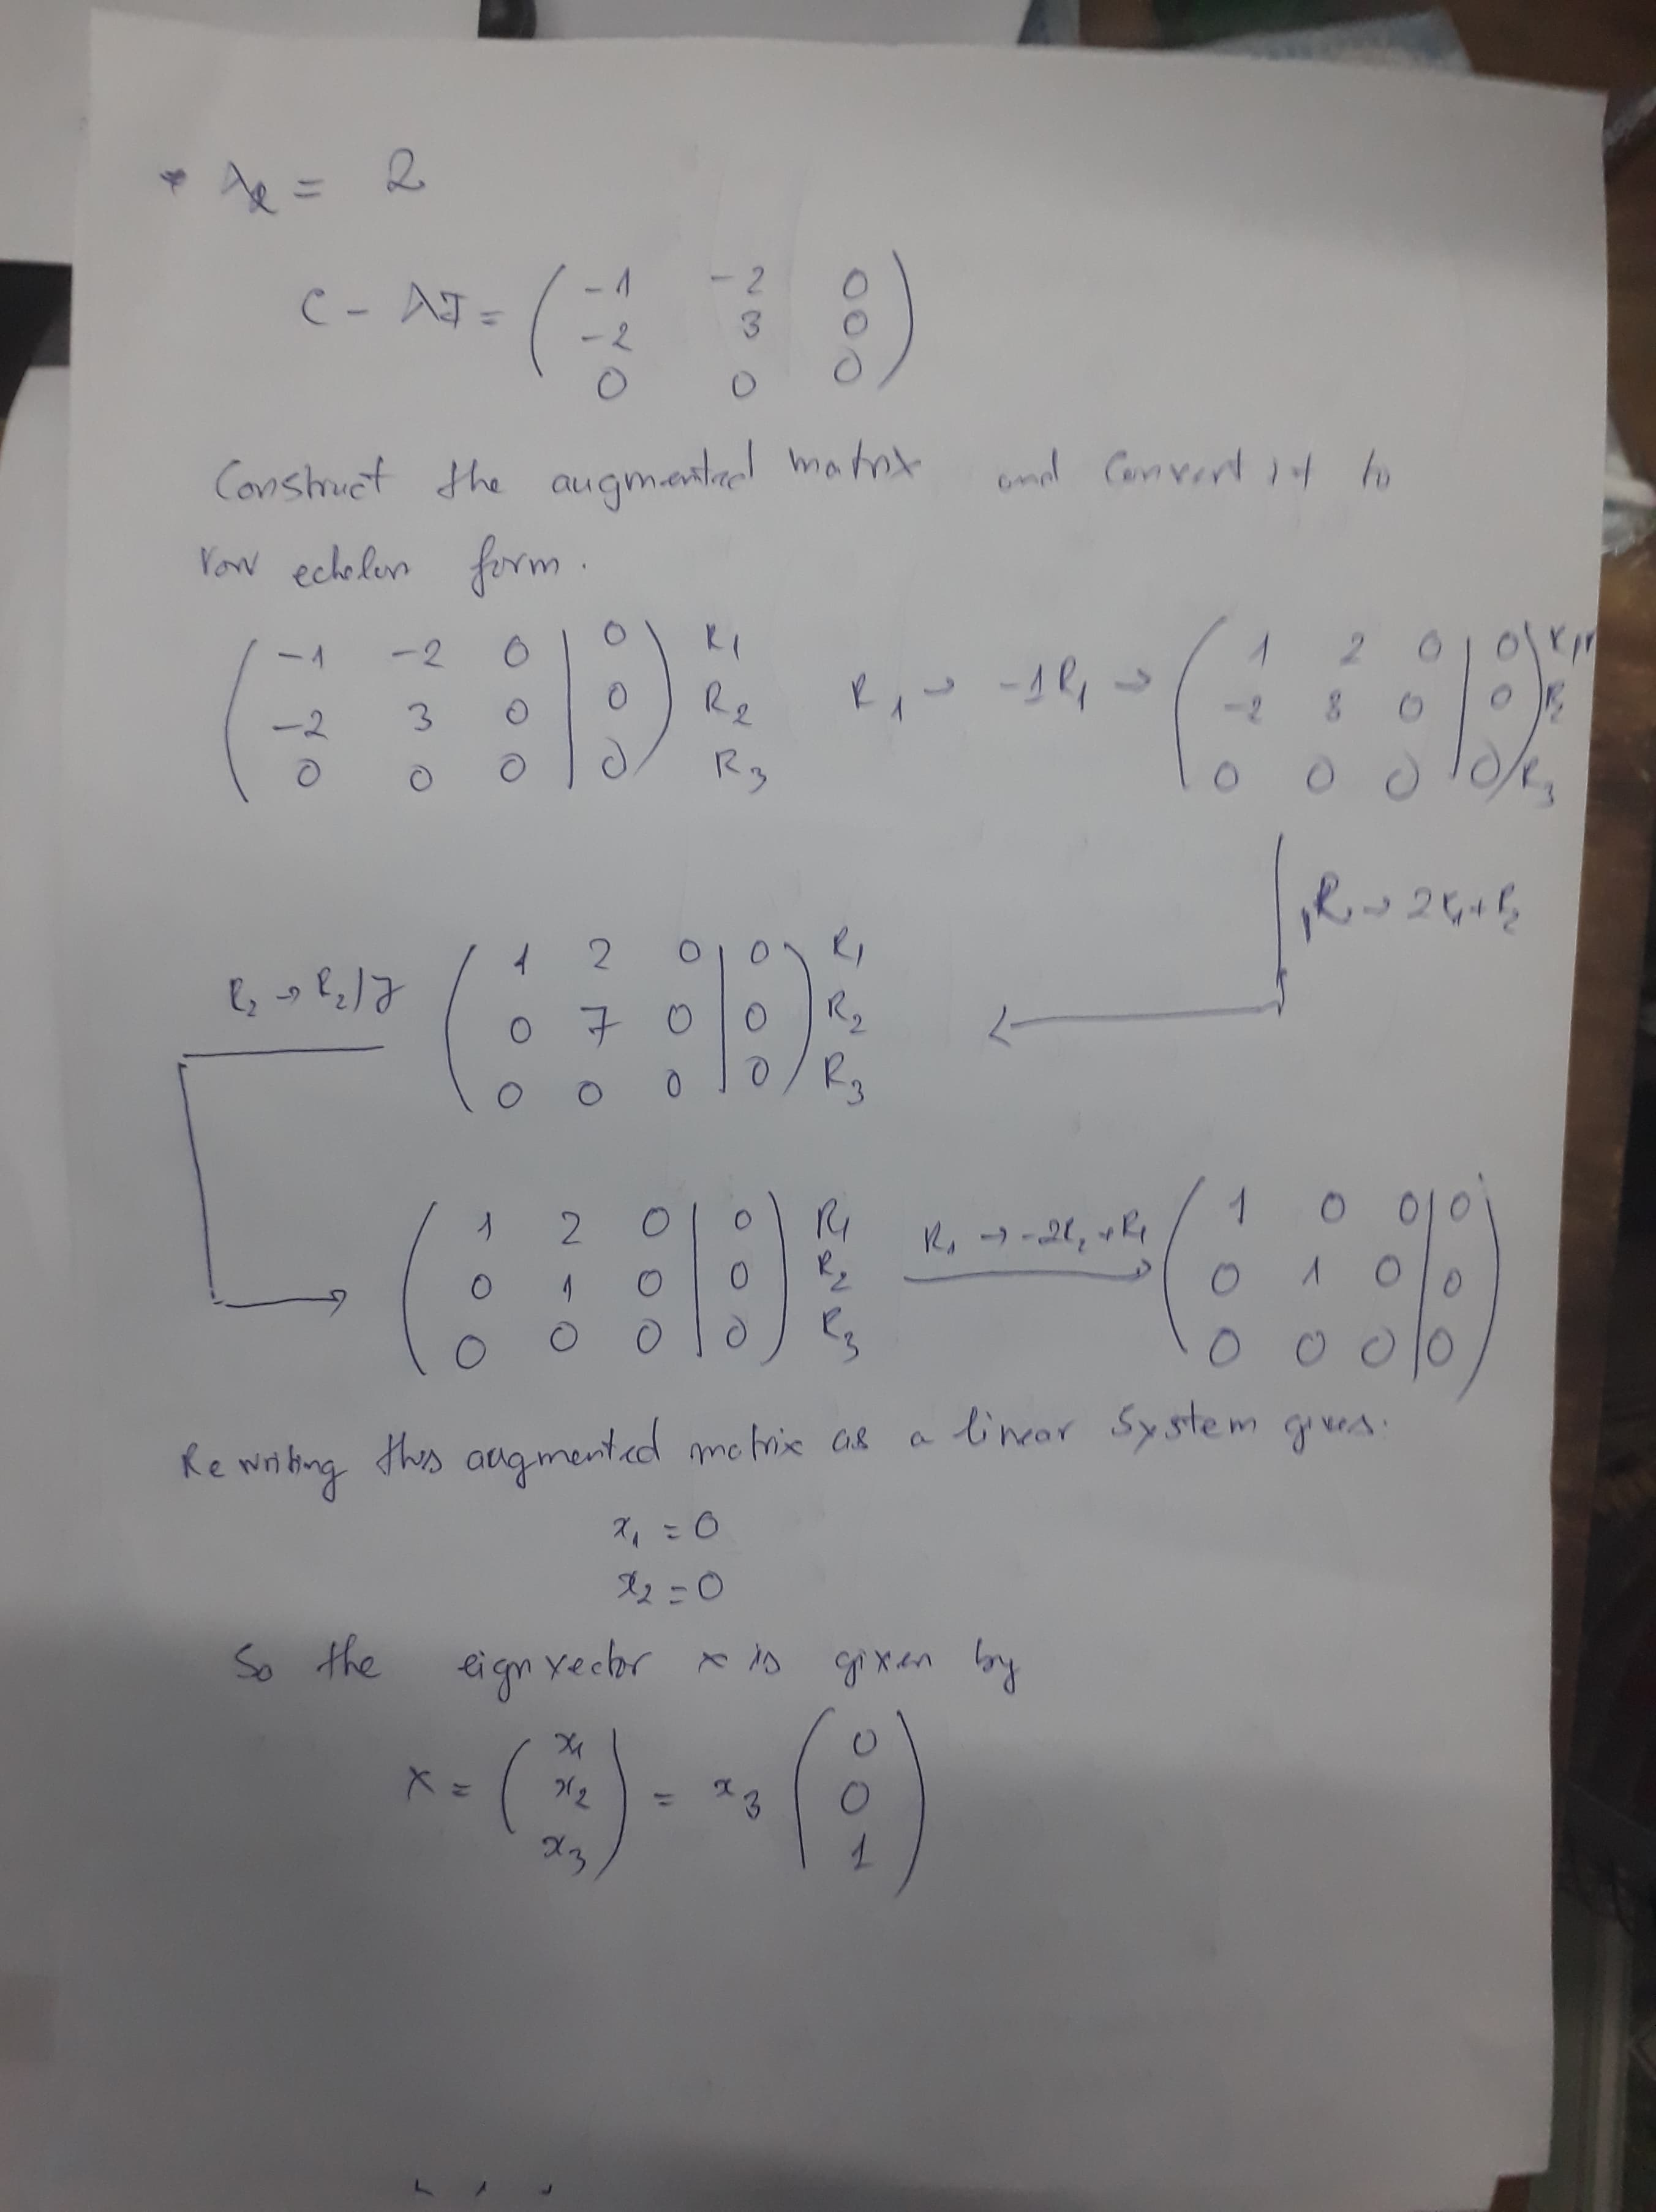 * λ2 = 2
C - λI = ( -1 -2 0
-2 3 0
0 0 0 )
Construct the augmented matrix and convert it to
row echelon form.
( -1 -2 0 | 0 ) R1
( -2 3 0 | 0 ) R2
( 0 0 0 | 0 ) R3
R1 → -1R1 →
( 1 2 0 | 0 )
( -2 3 0 | 0 ) R2
( 0 0 0 | 0 ) R3
→ 2R1 + R2
( 1 2 0 | 0 ) R1
( 0 7 0 | 0 ) R2
( 0 0 0 | 0 ) R3
R2 → R2/7
( 1 2 0 | 0 ) R1
( 0 1 0 | 0 ) R2
( 0 0 0 | 0 ) R3
R1 → -2R2 + R1
( 1 0 0 | 0 )
( 0 1 0 | 0 )
( 0 0 0 | 0 )
Rewriting this augmented matrix as a linear system gives.
x1 = 0
x2 = 0
So the eignvector x is given by
x = ( x1
x2
x3 ) = x3 ( 0
0
1 )